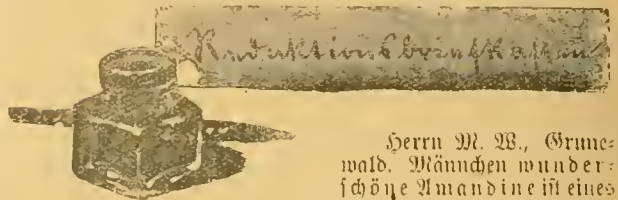 Redaktionsbriefkasten
Herrn M. W., Grune=
wald. Männchen wunder=
schöne Amandine ist eines